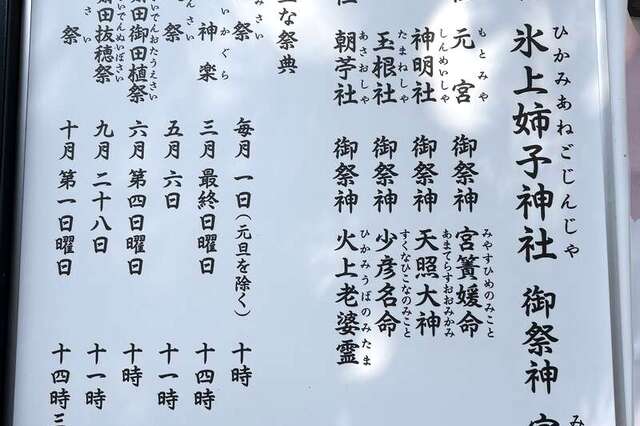 ひかみあねごじんじゃ
氷上姉子神社 御祭神
もとみや みやすひめのみこと
元宮 御祭神 宮簀媛命
しんめいしゃ あまてらすおおみかみ
神明社 御祭神 天照大神
たまねしゃ すくなひこなのみこと
玉根社 御祭神 少彦名命
あさおしゃ ひかみうばのみたま
朝苧社 御祭神 火上老婆霊
な祭典
さい
祭 毎月 一日(元旦を除く) 十時
いかぐら
神楽 三月 最終日曜日 十四時
さい
祭 五月 六日 十一時
でんおたうえさい
田御田植祭 六月 第四日曜日 十時
いでんぬいぼさい
田抜穂祭 九月 二十八日 十一時
さい
祭 十月 第一日曜日 十四時三